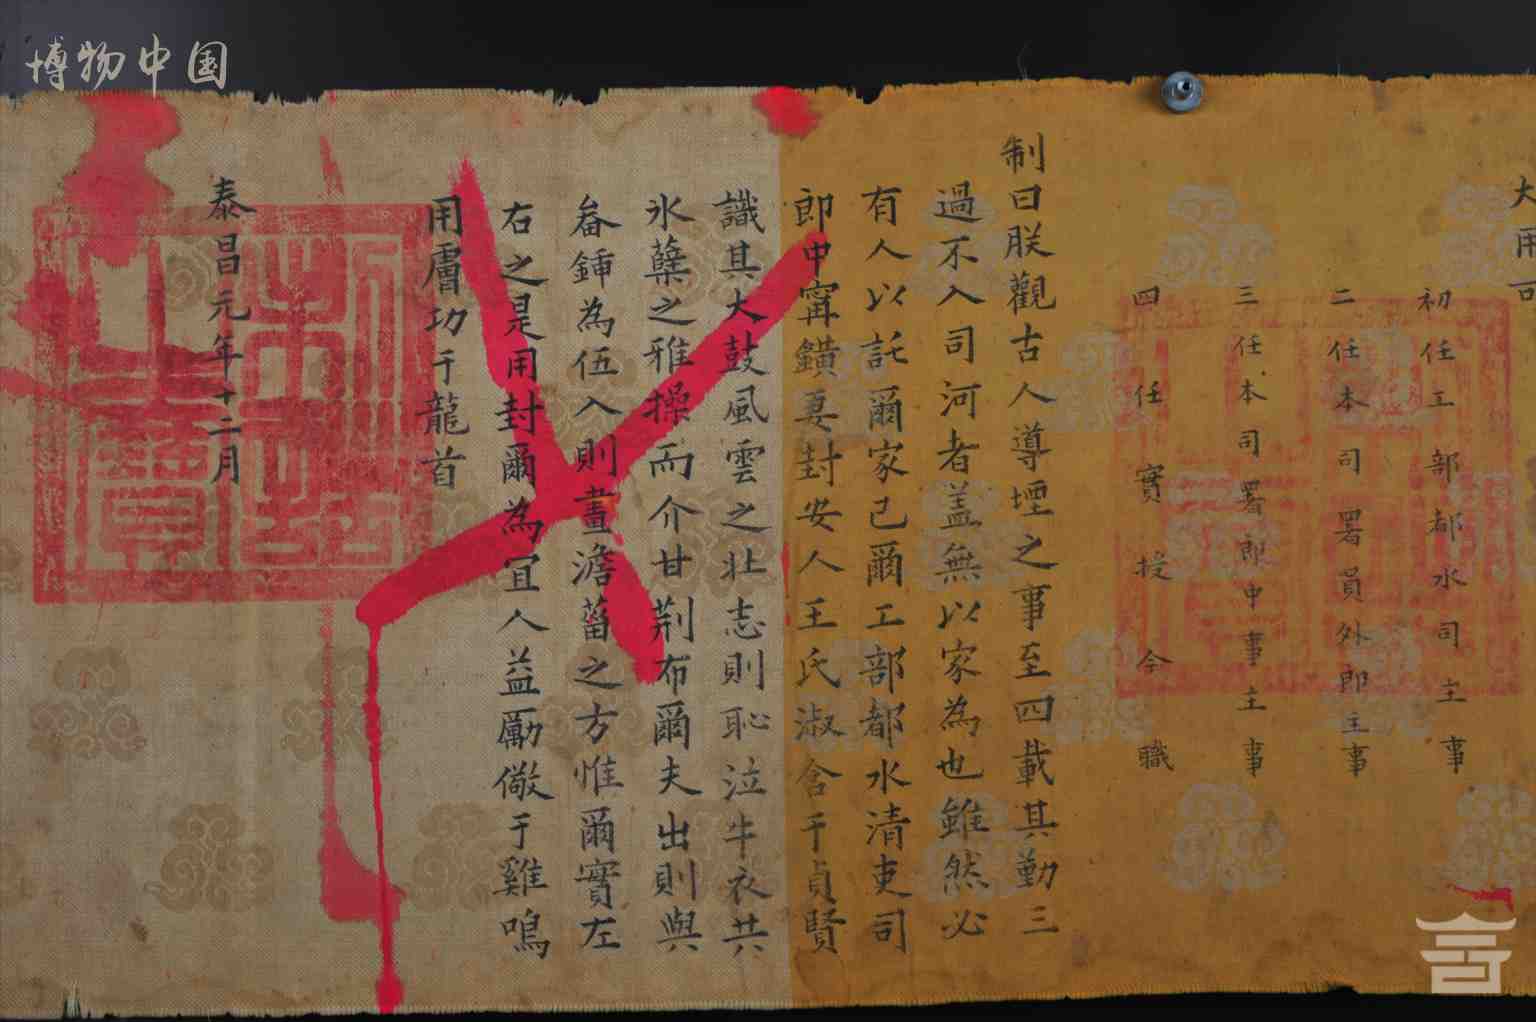 大用可
初任工部都水司主事
二任本司署員外郎主事
三任本司署郎中事主事
四任實授今職
制曰朕觀古人導堙之事至四載其勤三
過不入司河者盖無以家為也雖然必
有人以託爾家已爾工部都水清吏司
郎中甯鑛妻封安人王氏淑含于貞賢
識其大鼓風雲之壯志則恥泣牛衣共
氷蘗之雅操而介甘荆布爾夫出則與
畚鍤為伍入則畫澹菑之方惟爾實左
右之是用封爾為宜人益勵儆于雞鳴
用膚功于龍首
泰昌元年十二月
制誥之寶
博物中国